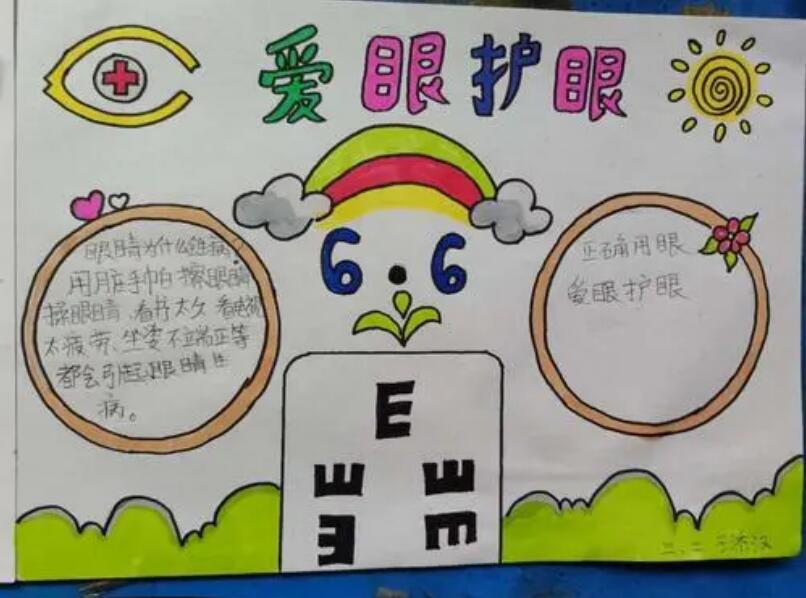 爱眼护眼
6.6
眼睛为什么生病?
用脏手帕擦眼睛
揉眼睛、看书太久、看电视
太疲劳、坐姿不端正等
都会引起眼睛生
病。
正确用眼
爱眼护眼
E
E E
E E
二、二